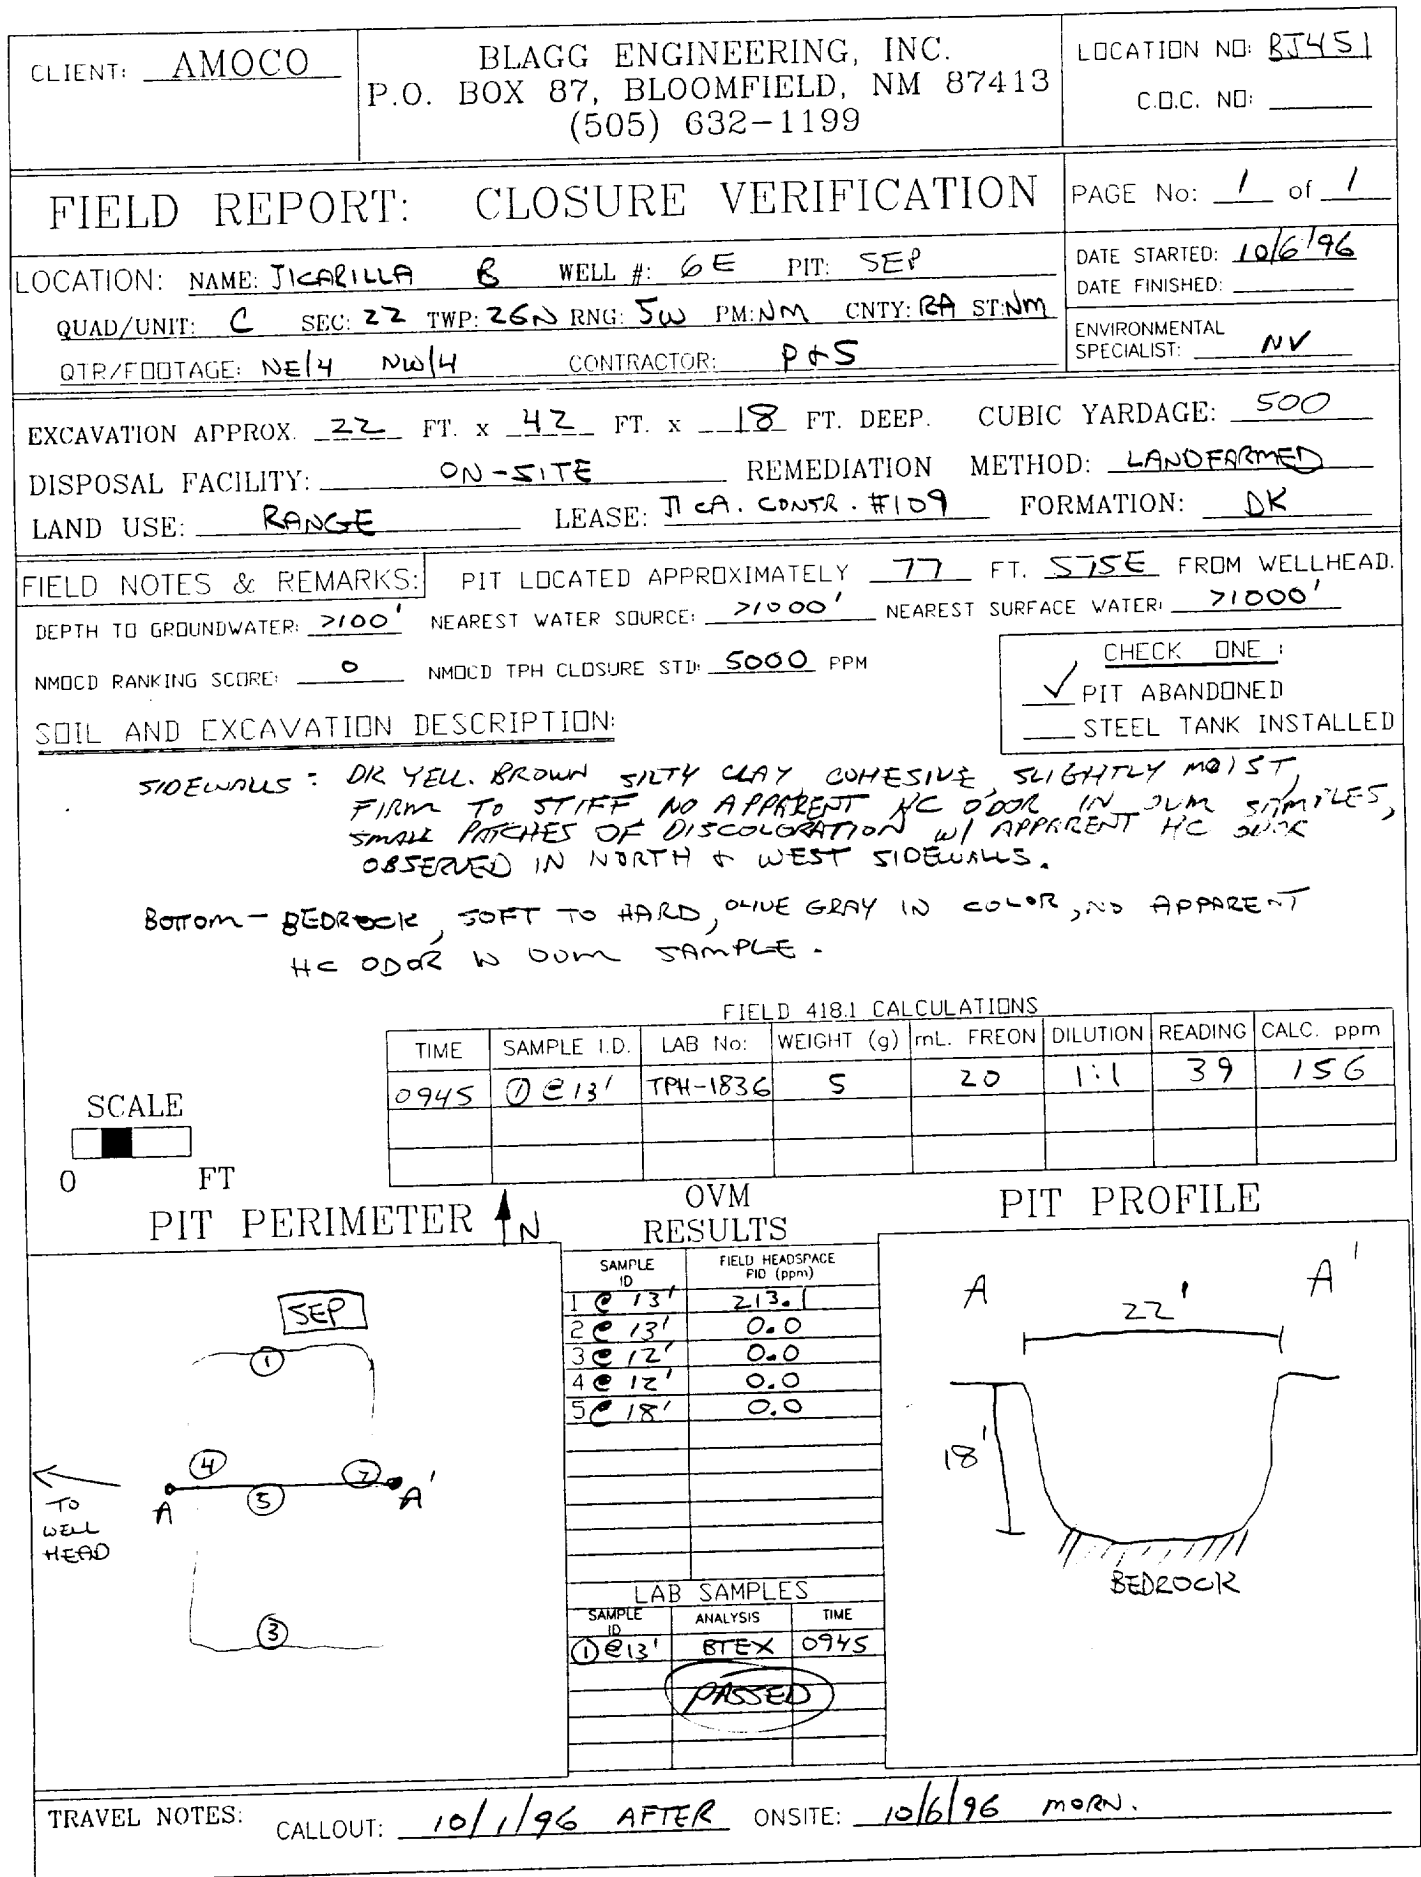 CLIENT: AMOCO
BLAGG ENGINEERING, INC.
P.O. BOX 87, BLOOMFIELD, NM 87413
(505) 632-1199
LOCATION NO: BJ451
C.O.C. NO:
FIELD REPORT: CLOSURE VERIFICATION
PAGE No: 1 of 1
LOCATION: NAME: JICARILLA B WELL #: 6E PIT: SEP
QUAD/UNIT: C SEC: 22 TWP: 26N RNG: 5W PM: NM CNTY: RA ST: NM
QTR/FOOTAGE: NE/4 NW/4 CONTRACTOR: P+S
DATE STARTED: 10/6/96
DATE FINISHED:
ENVIRONMENTAL
SPECIALIST: NV
EXCAVATION APPROX. 22 FT. x 42 FT. x 18 FT. DEEP. CUBIC YARDAGE: 500
DISPOSAL FACILITY: ON-SITE REMEDIATION METHOD: LANDFARMED
LAND USE: RANGE LEASE: JICA. CONTR. #109 FORMATION: DK
FIELD NOTES & REMARKS: PIT LOCATED APPROXIMATELY 77 FT. S75E FROM WELLHEAD.
DEPTH TO GROUNDWATER: >100' NEAREST WATER SOURCE: >1000' NEAREST SURFACE WATER: >1000'
NMOCD RANKING SCORE: 0 NMOCD TPH CLOSURE STD: 5000 PPM
CHECK ONE :
✓ PIT ABANDONED
STEEL TANK INSTALLED
SOIL AND EXCAVATION DESCRIPTION:
SIDEWALLS : DK YELL. BROWN SILTY CLAY, COHESIVE, SLIGHTLY MOIST,
FIRM TO STIFF NO APPARENT HC ODOR IN OVM SAMPLES,
SMALL PATCHES OF DISCOLORATION W/ APPARENT HC ODOR
OBSERVED IN NORTH & WEST SIDEWALLS.
BOTTOM - BEDROCK, SOFT TO HARD, OLIVE GRAY IN COLOR, NO APPARENT
HC ODOR IN OVM SAMPLE.
FIELD 418.1 CALCULATIONS
TIME SAMPLE I.D. LAB No: WEIGHT (g) mL. FREON DILUTION READING CALC. ppm
0945 ① @ 13' TPH-1836 5 20 1:1 39 156
SCALE
0 FT
PIT PERIMETER N
SEP
①
④ ②
A ⑤ A'
TO
WELL
HEAD
③
OVM
RESULTS
SAMPLE ID FIELD HEADSPACE PID (ppm)
1 @ 13' 213.1
2 @ 13' 0.0
3 @ 12' 0.0
4 @ 12' 0.0
5 @ 18' 0.0
LAB SAMPLES
SAMPLE ID ANALYSIS TIME
① @ 13' BTEX 0945
PASSED
PIT PROFILE
A A'
22'
18'
BEDROCK
TRAVEL NOTES: CALLOUT: 10/1/96 AFTER ONSITE: 10/6/96 MORN.